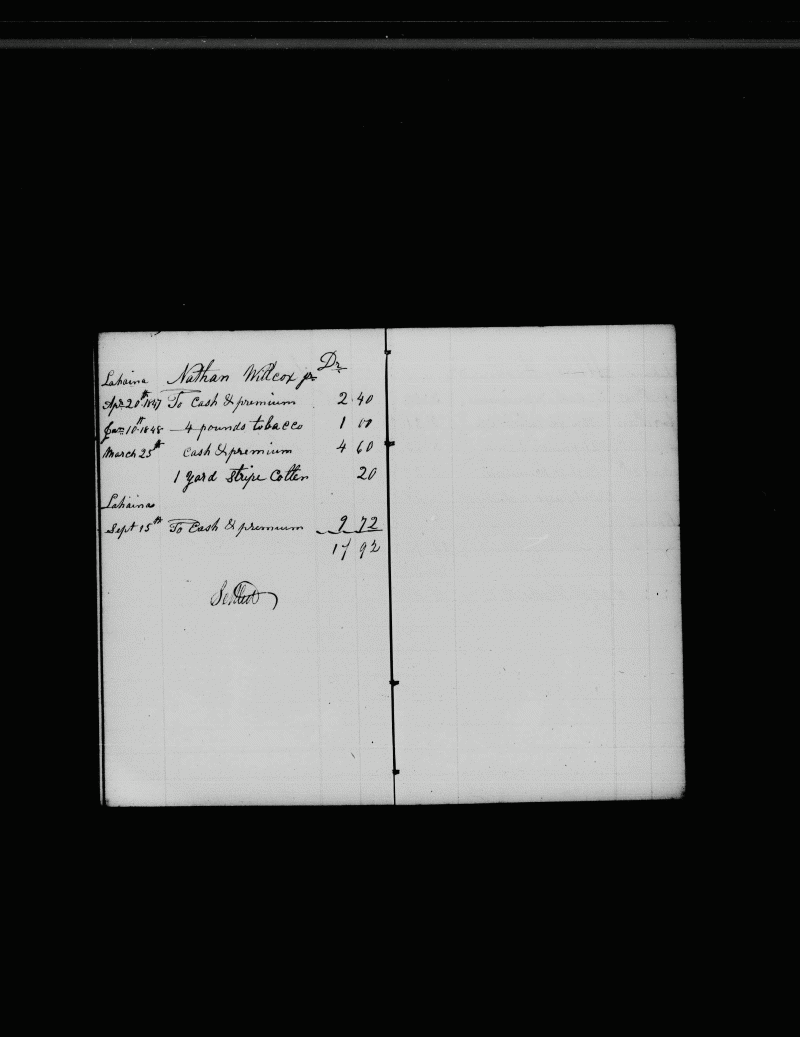 Dr
Lahaina Nathan Willcox jr
Apr 20th 1847 To Cash & premium 2 40
Jan 10th 1848 4 pounds tobacco 1 00
March 25th cash & premium 4 60
1 Yard Stripe Cotten 20
Lahaina
Sept 15th To Cash & premium 9 72
17 92
Settled